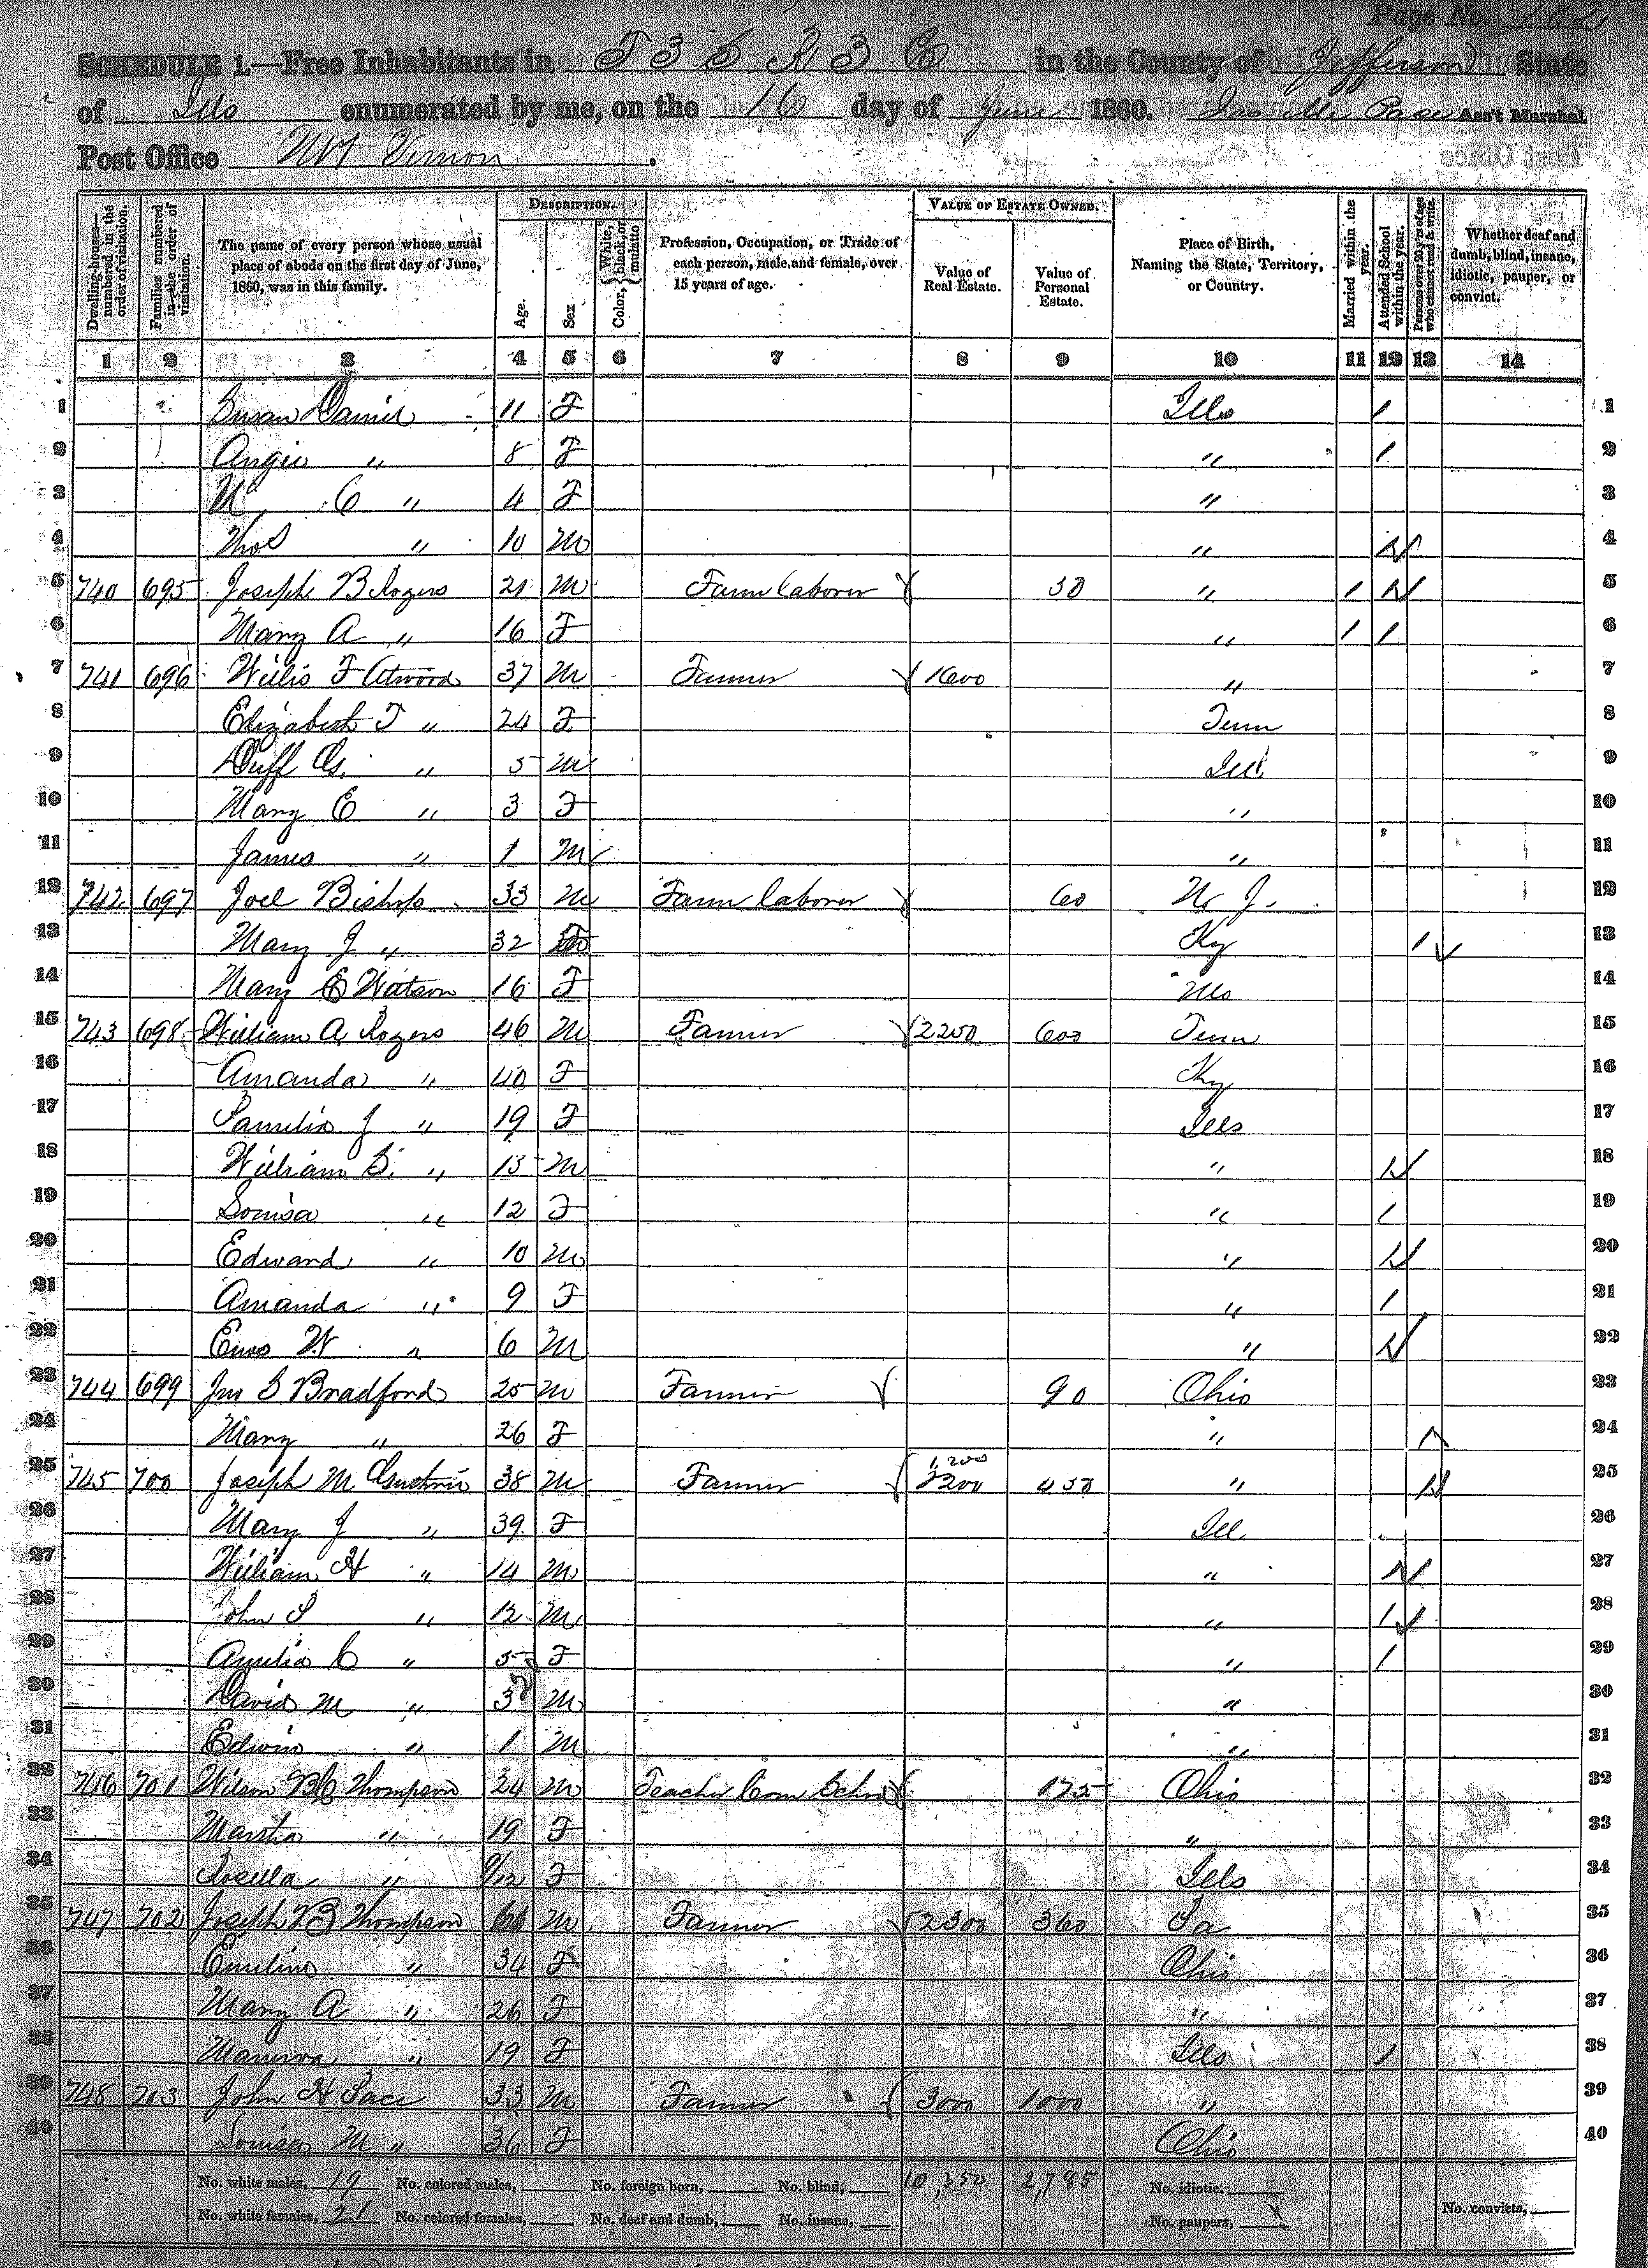 Page No. 102
SCHEDULE 1.—Free Inhabitants in T 3 S R 3 E in the County of Jefferson State
of Ills enumerated by me, on the 16 day of June 1860. Ass't Marshal.
Post Office Mt Vernon.
Dwelling-houses—numbered in the order of visitation.
Families numbered in the order of visitation.
The name of every person whose usual place of abode on the first day of June, 1860, was in this family.
DESCRIPTION.
Age.
Sex
Color, { White, black, or mulatto
Profession, Occupation, or Trade of each person, male and female, over 15 years of age.
VALUE OF ESTATE OWNED.
Value of Real Estate.
Value of Personal Estate.
Place of Birth, Naming the State, Territory, or Country.
Married within the year.
Attended School within the year.
Persons over 20 y'rs of age who cannot read & write.
Whether deaf and dumb, blind, insane, idiotic, pauper, or convict.
1 2 3 4 5 6 7 8 9 10 11 12 13 14
1 Susan Daniel 11 F Ills / 1
2 Angie " 8 F " / 2
3 C " 4 F " 3
4 Thos " 10 M " / 4
5 740 695 Joseph B Rogers 21 M Farm laborer 30 " / / 5
6 Mary A " 16 F " / / 6
7 741 696 Willis F Atwood 37 M Farmer 1600 " 7
8 Elizabeth T " 24 F Tenn 8
9 Duff G. " 5 M Ill 9
10 Mary E " 3 F " 10
11 James " 1 M " 11
12 742 697 Joel Bishop 33 M Farm laborer 60 N J. 12
13 Mary J " 32 Ky / 13
14 Mary E Watson 16 F Mo 14
15 743 698 William A Rogers 46 M Farmer 2200 600 Tenn 15
16 Amanda " 40 F Ky 16
17 Pamelia J " 19 F Ills 17
18 William S. " 15 M " / 18
19 Louisa " 12 F " / 19
20 Edward " 10 M " / 20
21 Amanda " 9 F " / 21
22 W " 6 M " / 22
23 744 699 Jno S Bradford 25 M Farmer 90 Ohio 23
24 Mary " 26 F " / 24
25 745 700 Joseph M Guthrie 38 M Farmer 1,200 450 " / 25
26 Mary J " 39 F Ill 26
27 William H " 14 M " / 27
28 John S " 12 M " / 28
29 Amelia C " 5 F " / 29
30 David M " 3 M " 30
31 Edwin " 1 M " 31
32 746 701 Wilson B Thompson 24 M Teacher Com School 175 Ohio 32
33 Martha " 19 F " 33
34 Rosella " 9/12 F Ills 34
35 747 702 Joseph B Thompson M Farmer 2300 360 Pa 35
36 Emeline " 34 F Ohio 36
37 Mary A " 26 F " 37
38 Manerva " 19 F Ills / 38
39 748 703 John H Pace 33 M Farmer 3000 1000 " 39
40 Louisa M " 36 F Ohio 40
No. white males, 19 No. colored males, No. foreign born, No. blind, 10,350 2,795 No. idiotic,
No. white females, 21 No. colored females, No. deaf and dumb, No. insane, No. paupers, No. convicts,